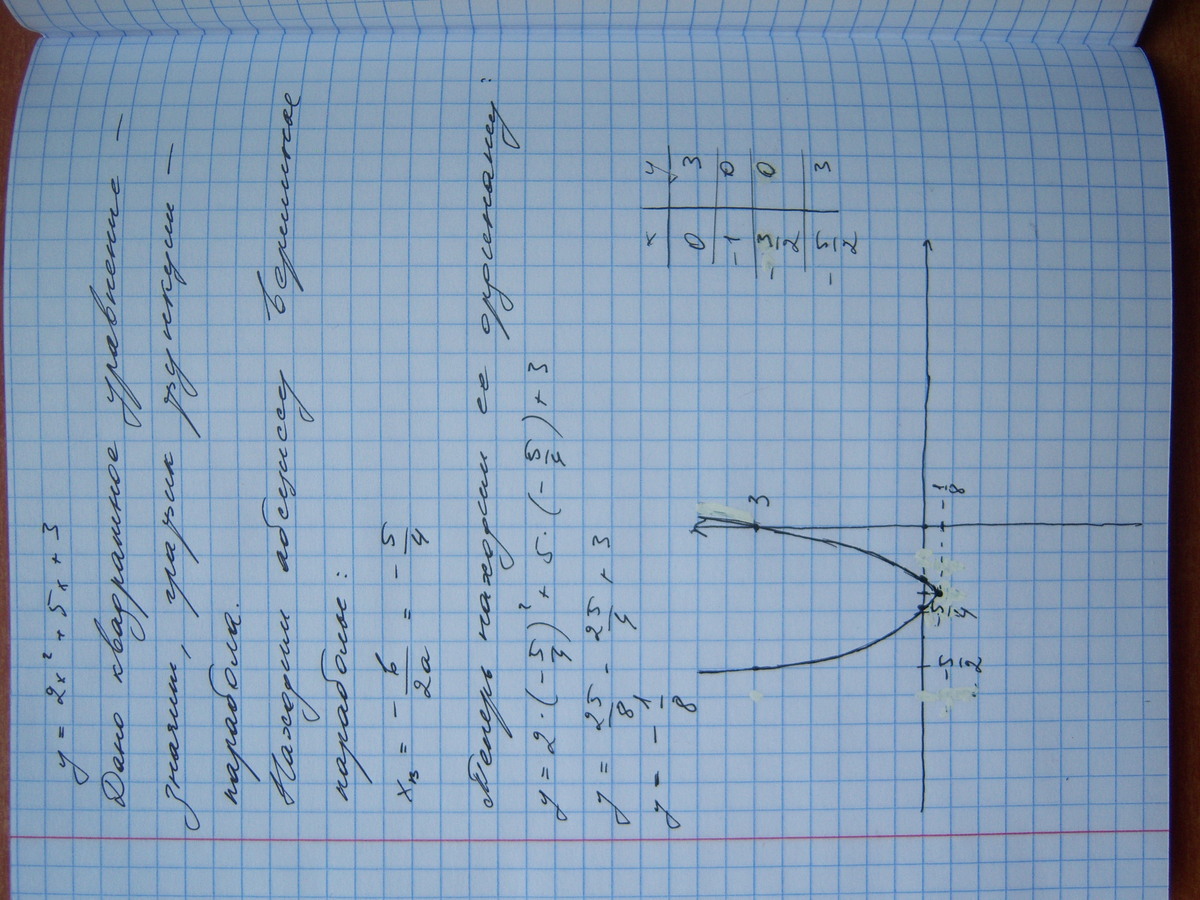 y = 2x² + 5x + 3
Дано квадратное уравнение –
значит, график функции –
парабола.
Находим абсциссу вершины
параболы:
xв = - b/2a = - 5/4
Теперь находим ее ординату:
y = 2·(-5/4)² + 5·(-5/4) + 3
y = 25/8 - 25/4 + 3
y = - 1/8
x y
0 3
-1 0
-3/2 0
-5/2 3
3
-1/8
-5/4
-5/2